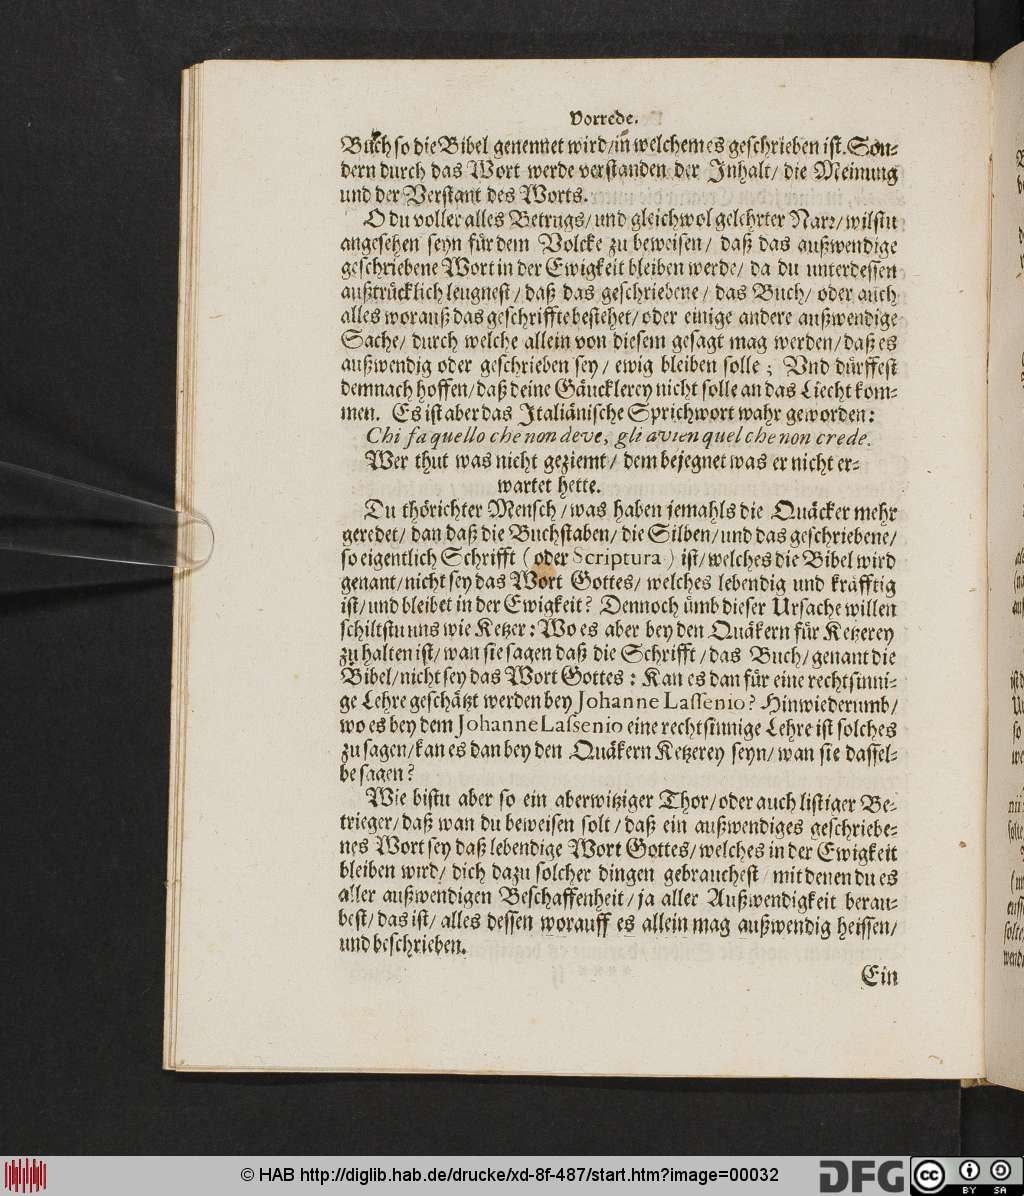 Vorrede.
Buch so die Bibel genennet wird/in welchem es geschrieben ist. Son-
dern durch das Wort werde verstanden der Inhalt/ die Meinung
und der Verstant des Worts.
O du voller alles Betrugs/und gleichwol gelehrter Narr/wilstu
angesehen seyn für dem Volcke zu beweisen/ daß das außwendige
geschriebene Wort in der Ewigkeit bleiben werde/ da du unterdessen
außtrücklich leugnest/ daß das geschriebene/ das Buch/ oder auch
alles worauß das geschriffte bestehet/oder einige andere außwendige
Sache/ durch welche allein von diesem gesagt mag werden/daß es
außwendig oder geschrieben sey/ ewig bleiben solle; Und dürffest
demnach hoffen/daß deine Gäucklerey nicht solle an das Liecht kom-
men. Es ist aber das Italiänische Sprichwort wahr geworden:
Chi fa quello che non deve, gli avien quel che non crede.
Wer thut was nicht geziemt/ dem bejegnet was er nicht er-
wartet hette.
Du thörichter Mensch/was haben jemahls die Quäcker mehr
geredet/ dan daß die Buchstaben/die Silben/und das geschriebene/
so eigentlich Schrifft (oder Scriptura) ist/welches die Bibel wird
genant/nicht sey das Wort Gottes/ welches lebendig und kräfftig
ist/und bleibet in der Ewigkeit? Dennoch ümb dieser Ursache willen
schiltstu uns wie Ketzer: Wo es aber bey den Quäkern für Ketzerey
zu halten ist/wan sie sagen daß die Schrifft/das Buch/genant die
Bibel/nicht sey das Wort Gottes: Kan es dan für eine rechtsinni-
ge Lehre geschätzt werden bey Johanne Lassenio? Hinwiederumb/
wo es bey dem Johanne Lassenio eine rechtsinnige Lehre ist solches
zu sagen/kan es dan bey den Quäkern Ketzerey seyn/wan sie dassel-
be sagen?
Wie bistu aber so ein aberwitziger Thor/oder auch listiger Be-
trieger/daß wan du beweisen solt/daß ein außwendiges geschriebe-
nes Wort sey daß lebendige Wort Gottes/welches in der Ewigkeit
bleiben wird/ dich dazu solcher dingen gebrauchest/ mit denen du es
aller außwendigen Beschaffenheit/ja aller Außwendigkeit berau-
best/das ist/alles dessen worauff es allein mag außwendig heissen/
und beschrieben.
Ein
© HAB http://diglib.hab.de/drucke/xd-8f-487/start.htm?image=00032
DFG
cc
BY SA